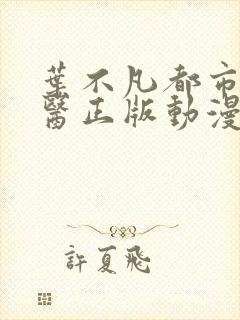 葉不凡都市
醫正版動漫
許夏飛